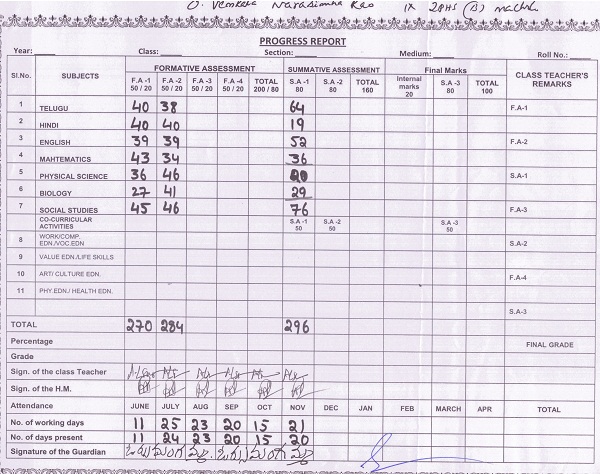 O. Venkata Narasimha Rao IX ZPHS (B)
PROGRESS REPORT
Year: Class: Section: Medium: Roll No.:
Sl.No. SUBJECTS FORMATIVE ASSESSMENT SUMMATIVE ASSESSMENT Final Marks CLASS TEACHER'S REMARKS
F.A -1 50 / 20 F.A -2 50 / 20 F.A -3 50 / 20 F.A -4 50 / 20 TOTAL 200 / 80 S.A -1 80 S.A -2 80 TOTAL 160 Internal marks 20 S.A -3 80 TOTAL 100
1 TELUGU 40 38 64 F.A-1
2 HINDI 40 40 19
3 ENGLISH 39 39 52 F.A-2
4 MAHTEMATICS 43 34 36
5 PHYSICAL SCIENCE 36 46 20 S.A-1
6 BIOLOGY 27 41 29
7 SOCIAL STUDIES 45 46 76 F.A-3
CO-CURRICULAR ACTIVITIES S.A -1 50 S.A -2 50 S.A -3 50
8 WORK/COMP. EDN./VOC.EDN S.A-2
9 VALUE EDN./LIFE SKILLS
10 ART/ CULTURE EDN. F.A-4
11 PHY.EDN./ HEALTH EDN.
S.A-3
TOTAL 270 284 296
Percentage FINAL GRADE
Grade
Sign. of the class Teacher
Sign. of the H.M.
Attendance JUNE JULY AUG SEP OCT NOV DEC JAN FEB MARCH APR TOTAL
No. of working days 11 25 23 20 15 21
No. of days present 11 24 23 20 15 20
Signature of the Guardian